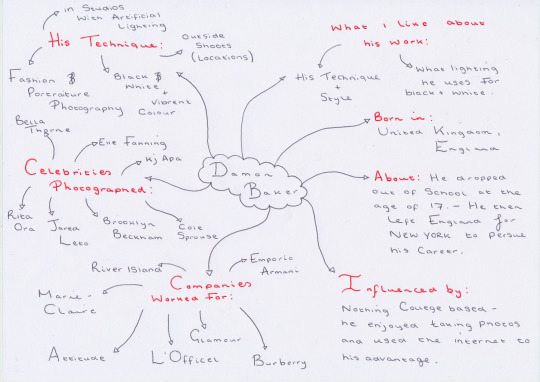 in Studios
With Artificial
Lighting
His Technique:
Outside
Shoots
(Locations)
Fashion &
Portraiture
Photography
Black &
White
+
Vibrant
Colour
What I like about
his work:
His Technique
+
Style
What lighting
he uses for
black + white.
Born in:
United Kingdom,
England
About: He dropped
out of School at the
age of 17. - He then
left England for
NEW YORK to persue
his Career.
Damon
Baker
Bella
Thorne
Elle Fanning
KJ Apa
Celebrities
Photographed:
Rita
Ora
Jared
Leto
Brooklyn
Beckham
Cole
Sprouse
River Island
Emporio
Armani
Companies
Worked For:
Marie-
Claire
Attitude
L'Officel
Glamour
Burberry
Influenced by:
Nothing College based -
he enjoyed taking photos
and used the internet to
his advantage.